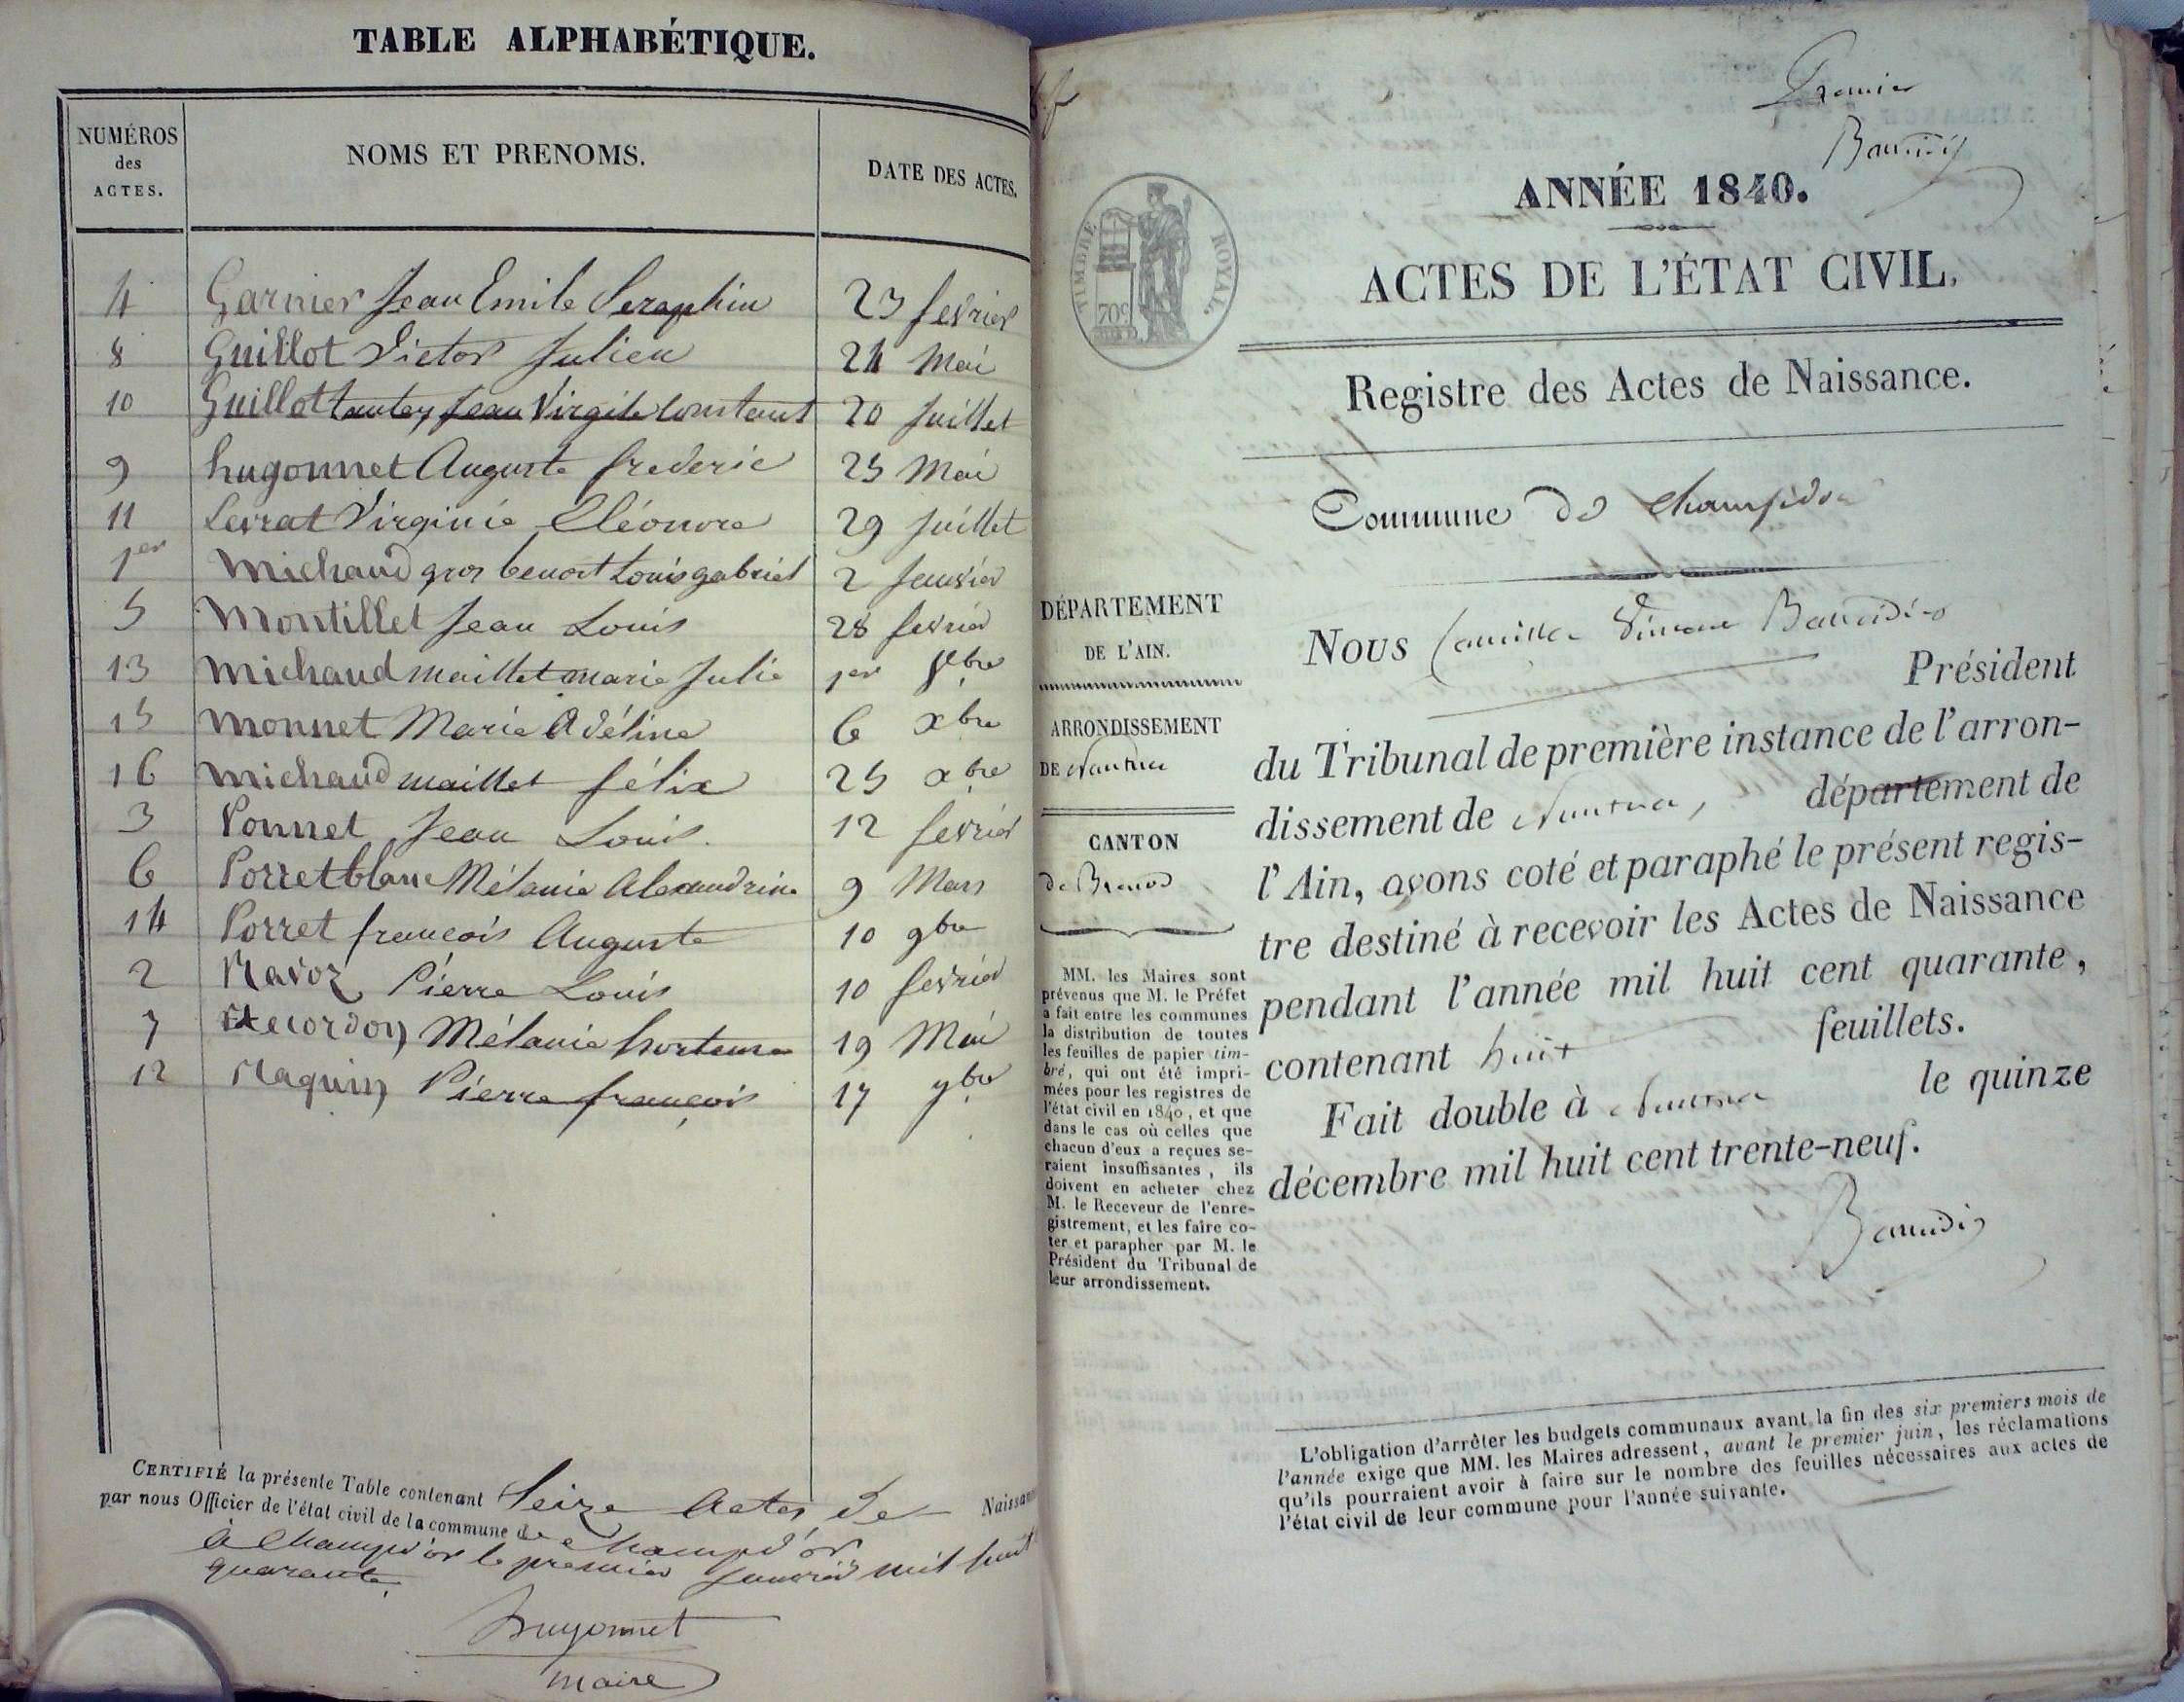 TABLE ALPHABÉTIQUE.
NUMÉROS des ACTES. NOMS ET PRENOMS. DATE DES ACTES.
4 Garnier Jean Emile Seraphin 23 fevrier
8 Guillot Victor Julien 24 Mai
10 Guillot Jean Virgile Constant 20 Juillet
9 hugonnet Auguste frederic 25 Mai
11 Levrat Virginie Eléonore 29 Juillet
1er Michaud gros benoit Louis gabriel 2 Janvier
5 Montillet Jean Louis 28 fevrier
13 Michaud maillet marie Julie 1er 8bre
15 Monnet Marie Adéline 6 xbre
16 Michaud maillet félix 25 xbre
3 Ponnet Jean Louis. 12 fevrier
6 Porret blanc Mélanie Alexandrine 9 Mars
14 Porret françois Auguste 10 9bre
2 Ravoz Pierre Louis 10 fevrier
7 Recordon Mélanie hortense 19 Mai
12 Raquin Pierre françois 17 7bre
CERTIFIÉ la présente Table contenant Seize Actes de Naissan
par nous Officier de l'état civil de la commune de Champd'or
à Champd'or le premier Janvier mil huit
quarante.
hugonnet
maire
Premier
Baudin
ANNÉE 1840.
TIMBRE ROYAL.
70c
ACTES DE L'ÉTAT CIVIL.
Registre des Actes de Naissance.
Commune de Champdor
DÉPARTEMENT
DE L'AIN.
ARRONDISSEMENT
DE Nantua
CANTON
de Brenod
MM. les Maires sont
prévenus que M. le Préfet
a fait entre les communes
la distribution de toutes
les feuilles de papier tim-
bré, qui ont été impri-
mées pour les registres de
l'état civil en 1840, et que
dans le cas où celles que
chacun d'eux a reçues se-
raient insuffisantes, ils
doivent en acheter chez
M. le Receveur de l'enre-
gistrement, et les faire co-
ter et parapher par M. le
Président du Tribunal de
leur arrondissement.
Nous Camille
Président
du Tribunal de première instance de l'arron-
dissement de Nantua, département de
l'Ain, avons coté et paraphé le présent regis-
tre destiné à recevoir les Actes de Naissance
pendant l'année mil huit cent quarante,
contenant huit feuillets.
Fait double à Nantua le quinze
décembre mil huit cent trente-neuf.
L'obligation d'arrêter les budgets communaux avant la fin des six premiers mois de
l'année exige que MM. les Maires adressent, avant le premier juin, les réclamations
qu'ils pourraient avoir à faire sur le nombre des feuilles nécessaires aux actes de
l'état civil de leur commune pour l'année suivante.